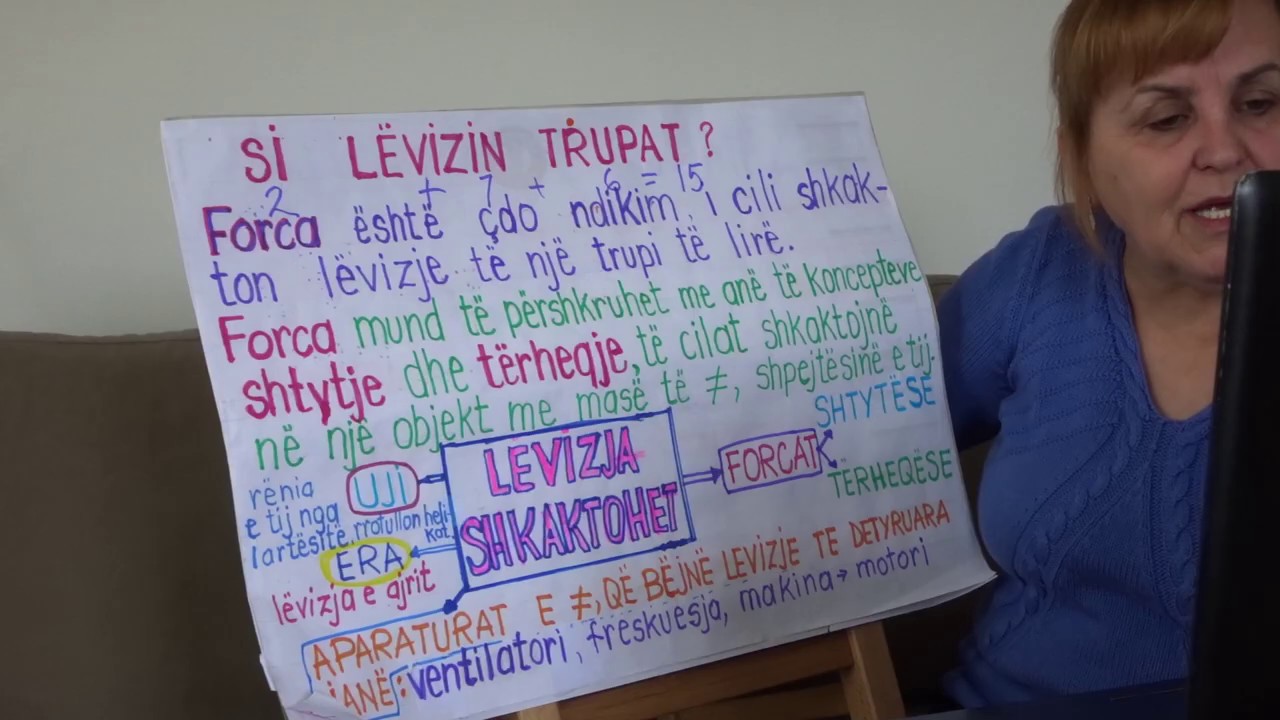 SI LËVIZIN TRUPAT?
2 + 7 + 6 = 15
Forca është çdo ndikim, i cili shkak-
ton lëvizje të një trupi të lirë.
Forca mund të përshkruhet me anë të koncepteve
shtytje dhe tërheqje, të cilat shkaktojnë
në një objekt me masë të ≠, shpejtësinë e tij.
LËVIZJA
SHKAKTOHET
FORCAT
SHTYTËSE
TËRHEQËSE
UJI
rënia
e tij nga
lartësitë, rrotullon heli-
kat
ERA
lëvizja e ajrit
APARATURAT E ≠, QË BËJNË LEVIZJE TE DETYRUARA
JANË: ventilatori, freskuesja, makina → motori